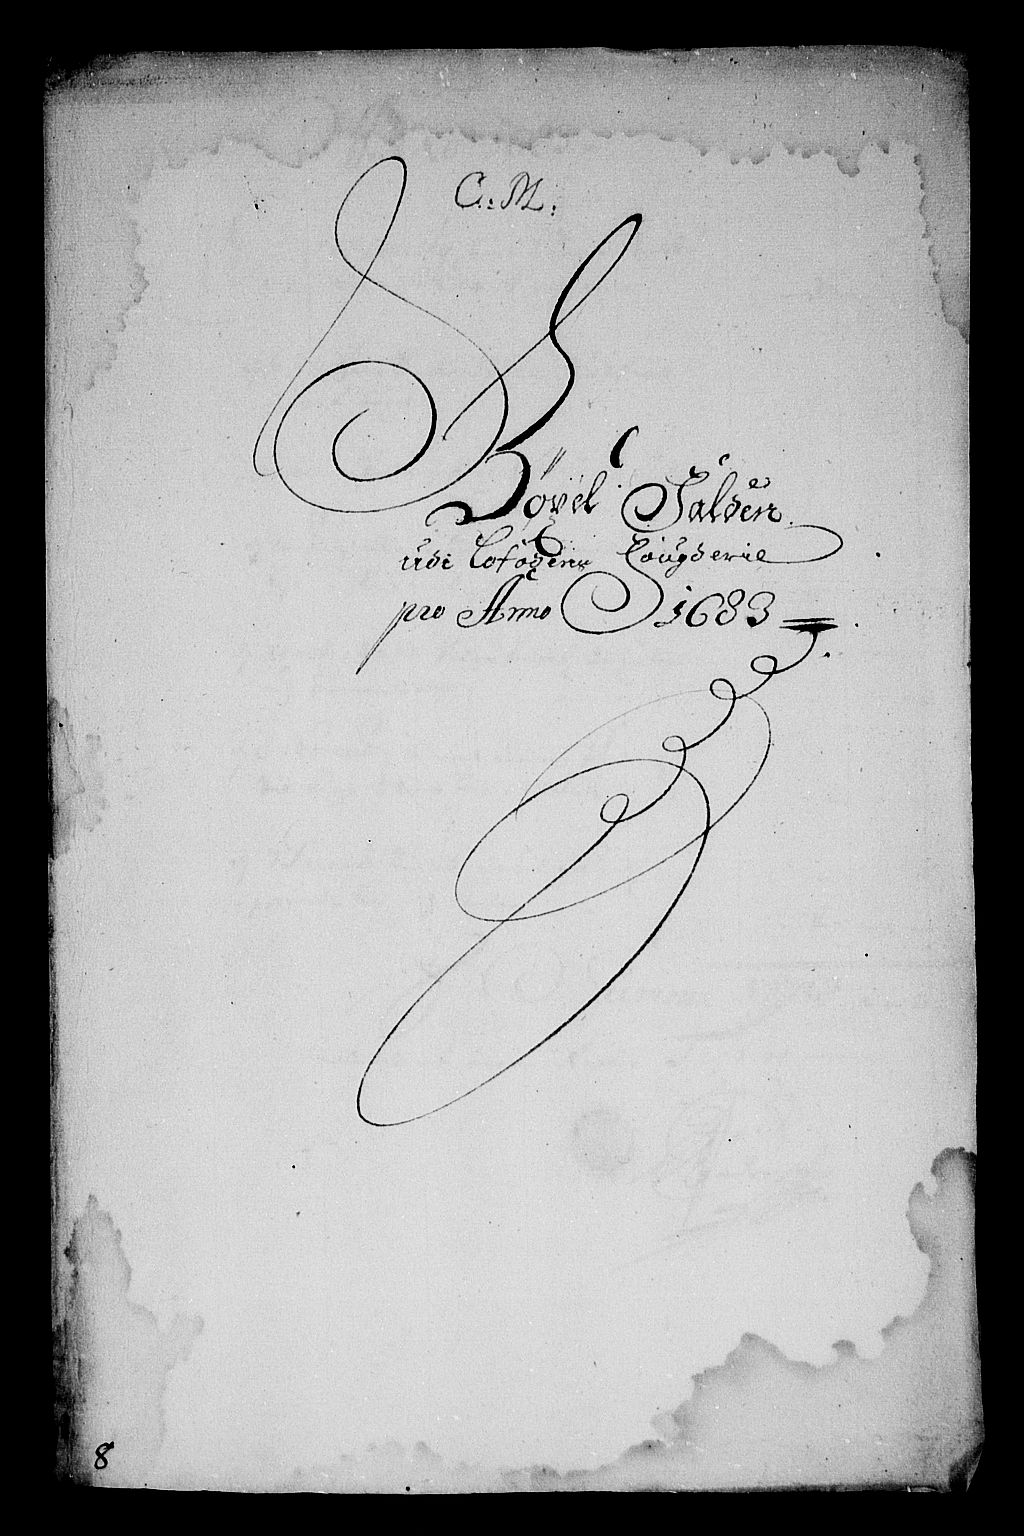 C: M:
Bøxel Falden
udi Lofodens Fougderie
pro Anno 1683
8